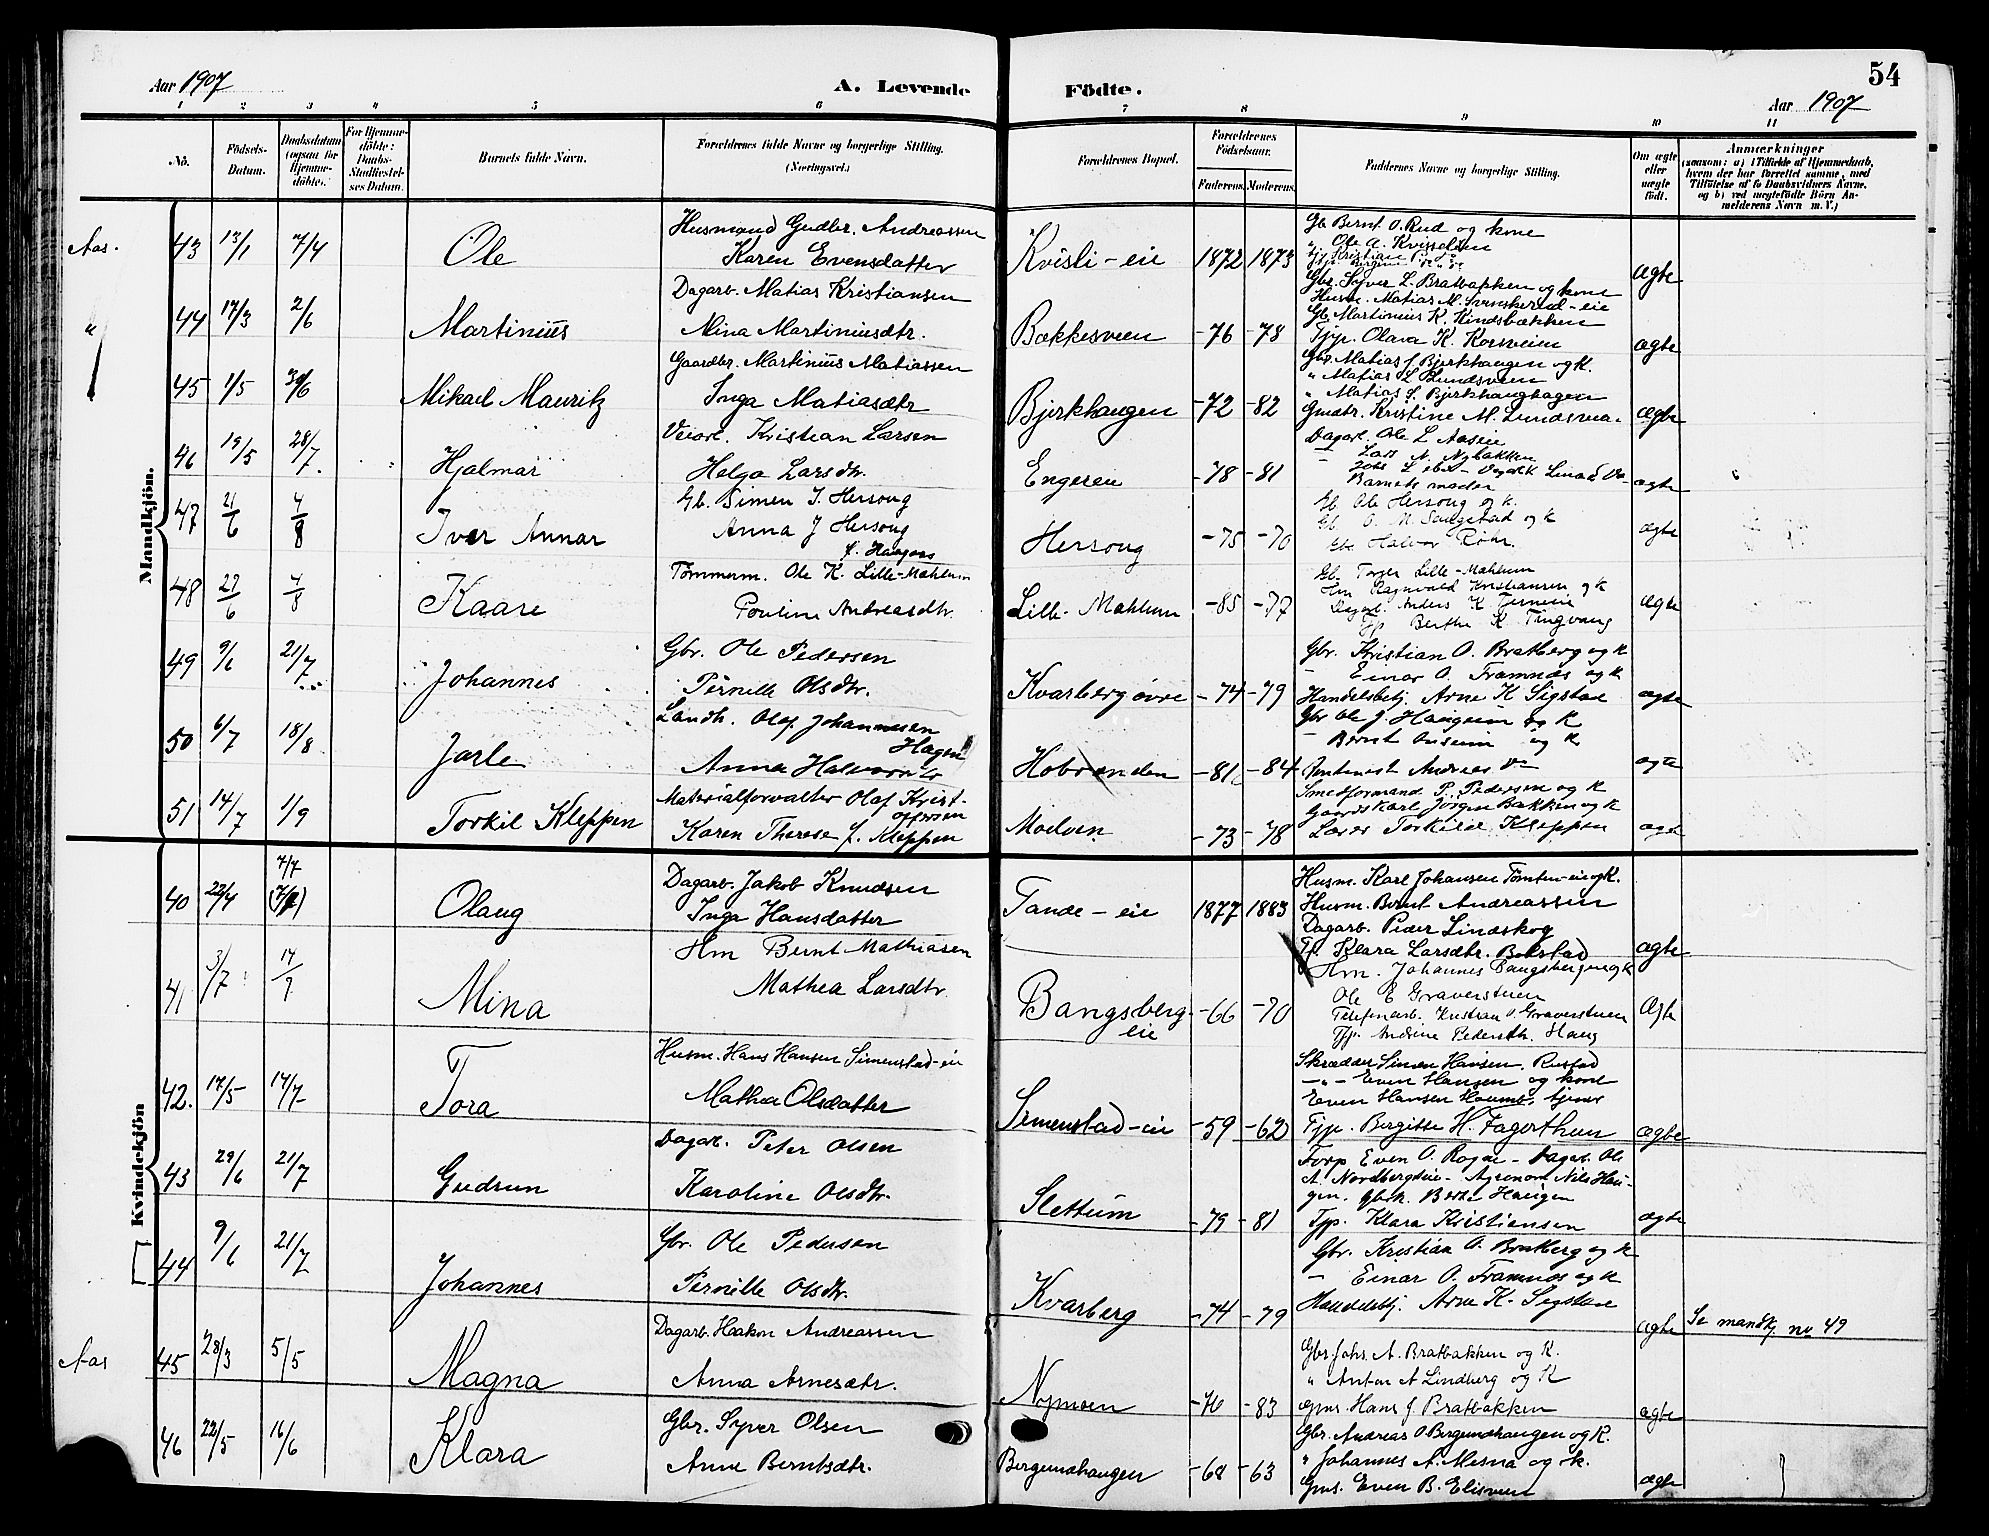 54
Aar 1907 A. Levende Födte. Aar 1907
1 2 3 4 5 6 7 8 9 10 11
No. Födsels-Datum. Daabsdatum (ogsaa for Hjemme-döbte. For Hjemme-döbte: Daabs-Stadfæstel-ses Datum. Barnets fulde Navn. Forældrenes fulde Navne og borgerlige Stilling. (Næringsvei.) Forældrenes Bopæl. Forældrenes Födselsaar. Faderens. Moderens. Faddernes Navne og borgerlige Stilling. Om ægte eller uægte födt. Anmærkninger (saasom: a) i Tilfælde af Hjemmedaab, hvem der har forrettet samme, med Tilföielse af to Daabsvidners Navne, og b) ved uægtefödte Börn An-melderens Navn m. V.)
Mandkjön.
Aas. 43 13/1 7/4 Ole Husmand Gudbr. Andreassen
Karen Evensdatter Kvisli-eie 1872 1873 ægte
Gb Bernt O. Rud og kone
" Ole A.
Gbr. Syver L. Bratbakken og kone
" 44 17/3 2/6 Martinius Dagarb. Matias Kristiansen
Mina Martiniusdtr. Bækkesveen -76 -78 ægte
Husm. Matias M. Svenskerud-eie
Gb Martinius K. Kindsbækken
Tjp. Olava K. Korsveien
45 1/5 30/6 Mikael Mauritz Gaardbr. Martinius Matiassen
Inga Matiasdtr Bjerkhaugen -72 -82 ægte
Gbr. Matias J Bjerkhaugen og K.
" Matias L Lundsveen
" Matias S. Bjerkhaughagen
Gmdtr. Kristine M. Lundsveen
46 19/5 28/7. Hjalmar Veiarb. Kristian Larsen
Helga Larsdtr. Engeren -78 -81 ægte
Dagarb. Ole L Aasen
Lars N. Nybakken
Barnets moder
47 21/6 4/8 Iver Annar Gb. Simen I. Hersoug
Anna J Hersoug
f. Haugnes Hersoug -75 -70 ægte
Gb. Ole Hersoug og k.
Gb O. M. Saugestad og k
Gbr Halvor Röhr.
48 27/6 4/8 Kaare Tömmerm. Ole K. Lille-Mæhlum
Pouline Andreasdtr. Lille-Mæhlum -85 -77 Ægte
Gb. Torger Lille-Mæhlum
Hm Ragnvald Kristiansen og k
Dagarb. Anders K.
Tjp Berthe K Tingvang
49 9/6 21/7 Johannes Gbr. Ole Pedersen
Pernille Olsdtr. Kvarberg övre -74 -79 ægte
Gbr. Kristian O. Bratberg og k
- Einar O. Framnæs og k
Handelsbetj. Arne K Sigstad
50 6/7 18/8 Jarle Landh. Olaf Johannesen
Hagen
Anna Halvorsdtr Hobranden -81 -84 ægte
Gbr Ole J Haugen og K
- Bernt og K
Andreas
51 14/7 1/9 Torkil Kleppen Materialforvalter Olaf Krist-
offersen
Karen Therese f. Kleppen Moelven -73 -78 ægte
Smedformand P. Pedersen og k
Gaardskarl Jörgen Bakken og k
Lærer Torkild Kleppen
Kvindekjön
40 22/4 7/7 Olaug Dagarb. Jakob Knudsen
Inga Hansdatter Tande-eie 1877 1883 ægte
Husm. Karl Johansen Tomten-eie og K.
Husm. Bernt Andreassen
Dagarb. Peder Lindskog
Tp. Klara Larsdtr. Bolstad
41 3/7 14/7 Mina Hm Bernt Mathiasen
Mathea Larsdtr. Bangsberg
eie -66 -70 Ægte
Hm. Johannes Bangsbergeie og k
Ole E Graverstuen
Telefonarb. Kristian O. Graverstuen
Tjp. Andrine Pedersdtr. Haug
42. 17/5 14/7 Tora Husm. Hans Hansen Simenstad-eie
Mathea Olsdatter Simenstad-eie -59 -62 ægte
Skrædder Simen Hansen Rustad
-"- Even Hansen og kone
Even Hansen
Tjp. Bergitte H. Fagerthun
43 29/6 21/7 Gudrun Dagarb. Peter Olsen
Karoline Olsdtr. Slettum -79 -81 ægte
Torp Even O. Rogne - Dagarb. Ole
A. Nordbergseie - Agronom Nils Hau-
gen. Gbrk. Berte Haugen
Tjp. Klara Kristiansen
44 9/6 21/7 Johannes Gbr. Ole Pedersen
Pernille Olsdtr. Kvarberg -74 -79 ægte Se mandkj. no 49
Gbr. Kristian O. Bratberg og k
- Einar O. Framnæs og k
Handelsbtj. Arne K. Sigstad
Aas 45 28/3 5/5 Magna Dagarb. Haakon Andreassen
Anna Arnesdtr. Nymoen -76 -83 ægte
Gbr. Johs. A. Bratbakken og K.
" Anton A Lindberg og K
Gms. Hans J. Bratbakken
46 22/5 16/6 Klara Gbr. Syver Olsen
Anne Berntsdtr. Bergundhaugen -68 -63 ægte
Gbr. Andreas O Bergundhaugen og K.
" Johannes A. Mesna og k.
Gms. Even B. Elisveen